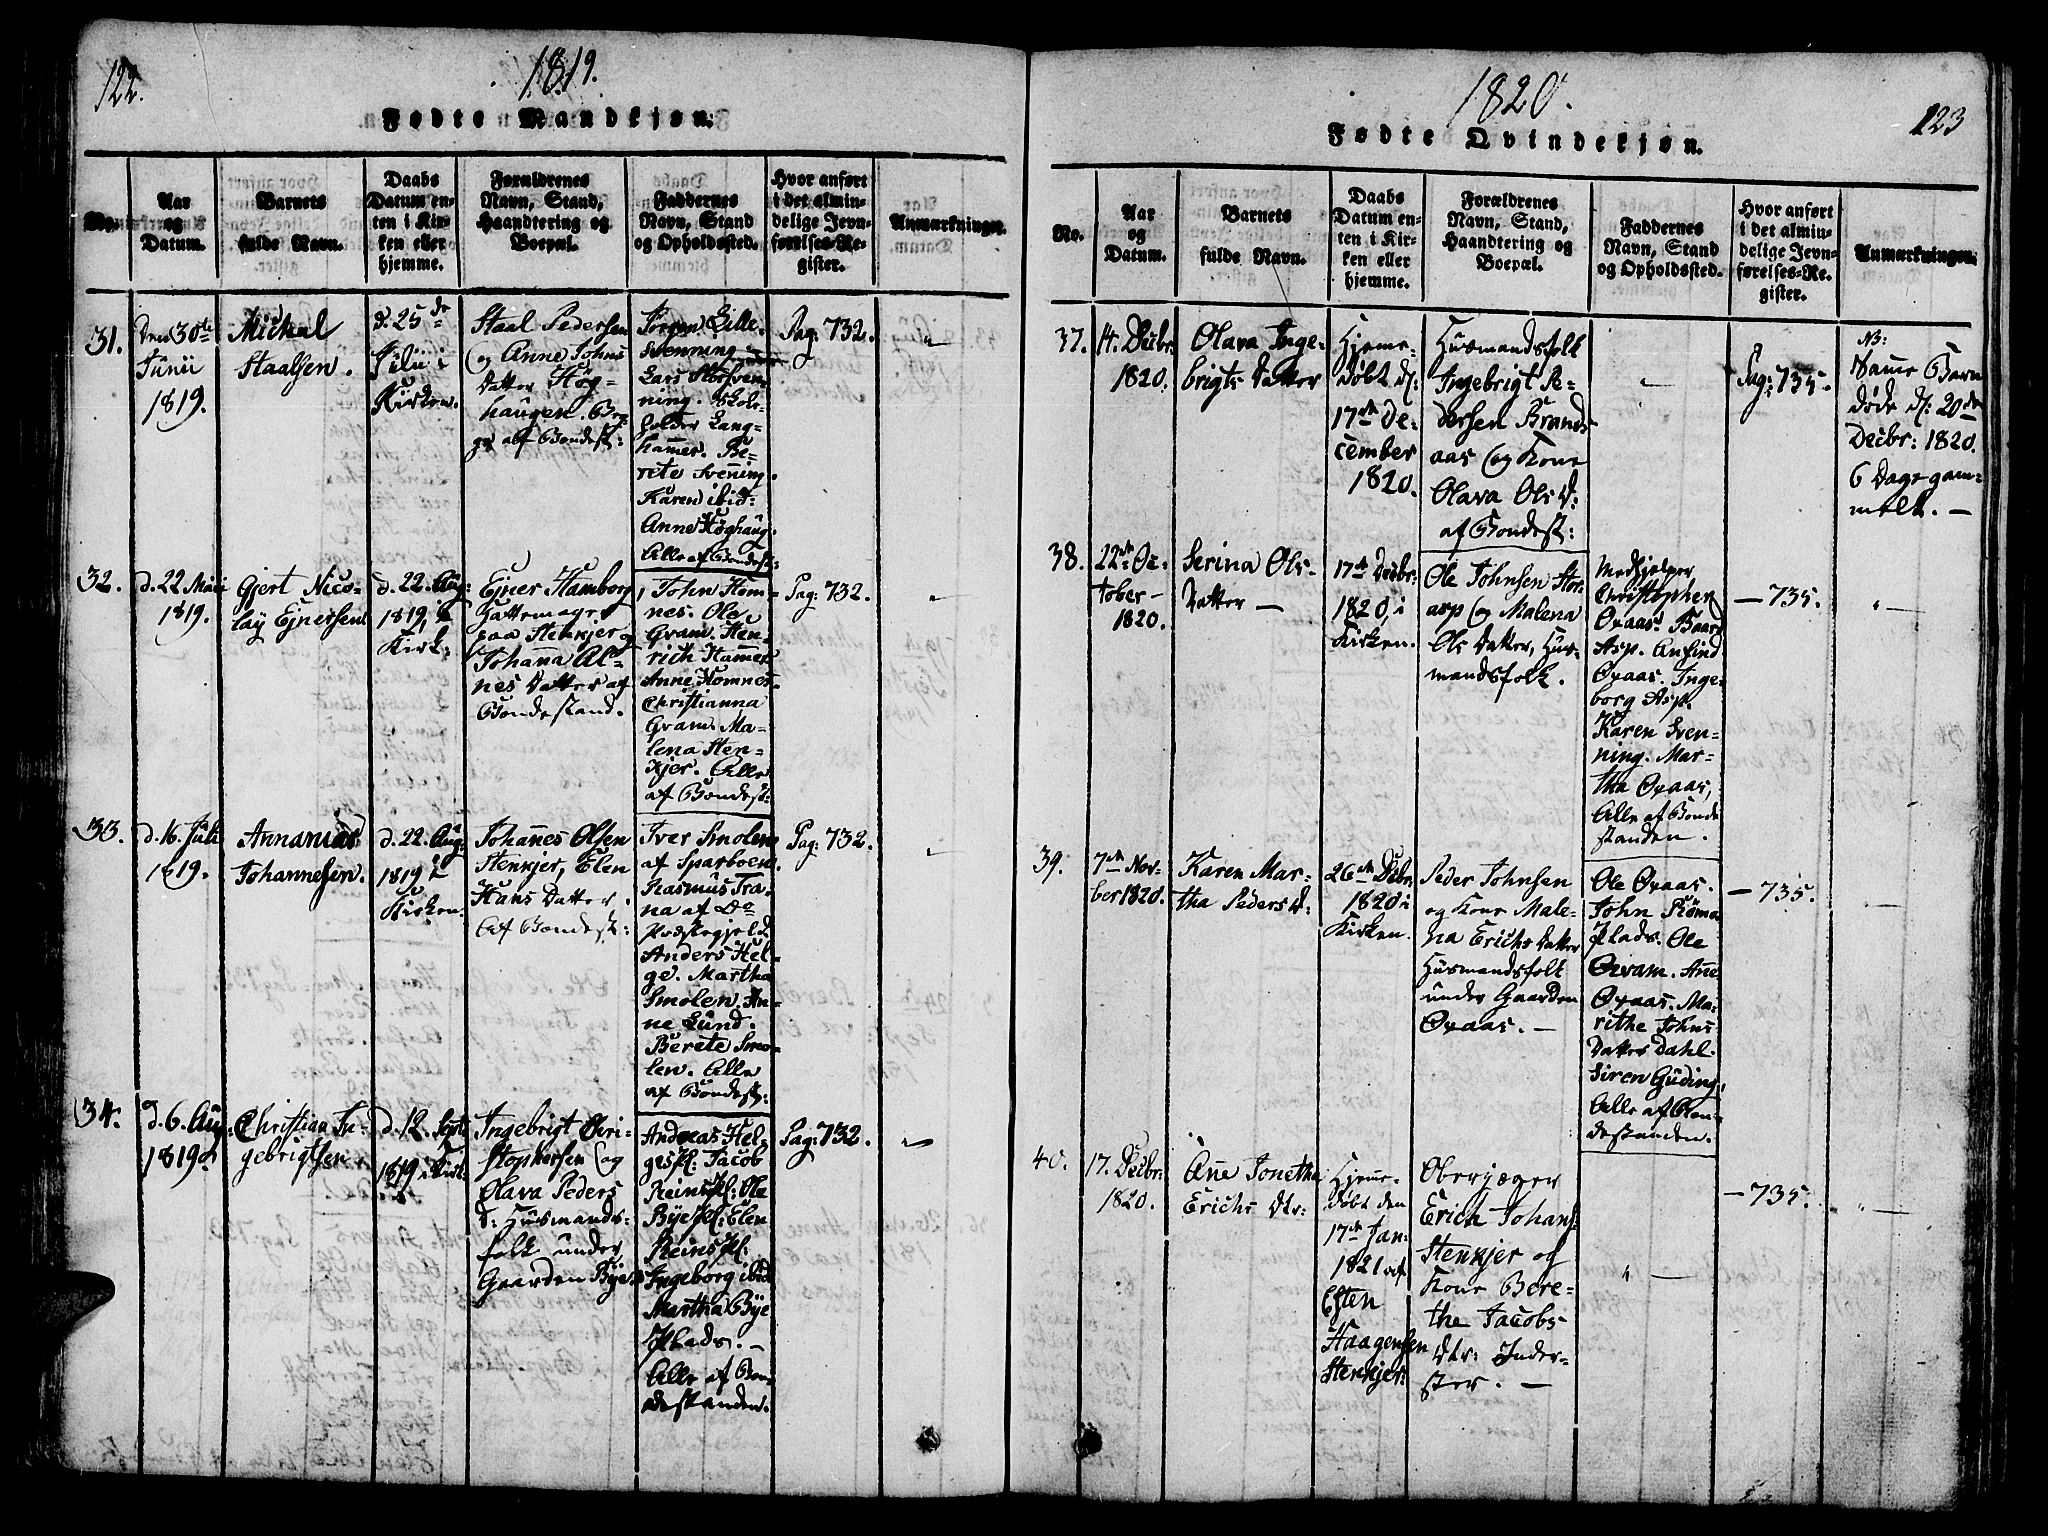 122.
1819.
Fødte Mandkjøn.
No.
Aar
og
Datum.
Barnets
fulde Navn.
Daabs
Datum en-
ten i Kir-
ken eller
hjemme.
Forældrenes
Navn, Stand,
Haandtering og
Boepæl.
Faddernes
Navn, Stand
og Opholdssted.
Hvor anført
i det almin-
delige Jevn-
førelses-Re-
gister.
Anmærkninger.
31.
Den 30te
Junii
1819.
Michal
Staalsen.
d. 25de
Julii i
Kirken.
Staal Pedersen
og Anne Johns
Datter Høg-
haugen. Beg-
ge af Bondest:
Jørgen Lille-
Svenning
Lars Storsven-
ning. Skole-
holder Lang-
hammer. Be-
rete Svening.
Karen ibid:
Anne Høghaug.
Alle af Bondest:
Pag: 732.
"
32.
d. 22 Maii
1819.
Gjert Nico-
lay Ejnersen
d. 22. Aug:
1819, i
Kirk:
Ejner Hamborg
Gattemager
paa Stenkjer og
Johanna Al-
nes Datter af
Bondestand.
John Hom-
nes. Ole
Gram. Hen-
rich Hammer
Anne Homnes.
Christianna
Gram. Ma-
lena Sten-
kjer. Alle
af Bondest:
Pag: 732.
"
33.
d. 16. Juli
1819.
Annanias
Johannesen.
d. 22. Aug:
1819 i
Kirken.
Johannes Olsen
Stenkjer, Elen
Hans Datter.
Af Bondest:
Iver Smolen
af Sparboen
Rasmus Tra-
na af Do
Præstegjeld.
Anders Hel-
ge. Martha
Smolen. An-
ne Lund.
Berete Smo-
len. Alle
af Bondest:
Pag: 732.
"
34.
d. 6. Aug:
1819.
Christian In-
gebrigtsen
d. 12. Sept:
1819 i Kirk:
Ingebrigt Chri-
stophersen og
Olava Peders
d: Husmands-
folk under
Gaarden Bye.
Andreas Hel-
gespl: Jacob
Reinspl: Ole
Byepl: Elen
Reinspl:
Ingeborg ibid
Martha Bye
Plads. —
Alle af Bon-
destanden.
Pag: 732.
"
1820.
123
Fødte Qvindekjøn.
No.
Aar
og
Datum.
Barnets
fulde Navn.
Daabs
Datum en-
ten i Kir-
ken eller
hjemme.
Forældrenes
Navn, Stand,
Haandtering og
Boepæl.
Faddernes
Navn, Stand
og Opholdssted.
Hvor anført
i det almin-
delige Jevn-
førelses-Re-
gister.
Anmærkninger.
37.
14. Decbr:
1820.
Olava Inge-
brigts Datter
Hjeme-
døbt d:
17de De-
cember
1820.
Husmandsfolk
Ingebrigt Pe-
dersen Brands-
aas og Kone
Olava Ols D:
af Bondest:
—
Pag: 735.
NB:
Samme Barn
døde d: 20de
Decbr: 1820.
6 Dage gam-
melt. —
38.
22de Oc-
tober —
1820.
Serina Ols-
Datter —
17de Decbr:
1820, i
Kirken.
Ole Johnsen Stor-
asp og Malena
Ols Datter, Hus-
mandsfolk.
Medhjelper
Christopher
Oxaas. Baard
Asp. Anfind
Oxaas. Inge-
borg Asp.
Karen Sven-
ning. Mar-
tha Oxaas,
Alle af Bonde
standen.
— 735.
" —
39.
7de Nov-
ber 1820.
Karen Mar-
tha Peders D:
26de Decbr
1820 i
Kirken.
Peder Johnsen
og Kone Male-
na Erichs Datter
Husmandsfolk
under Gaarden
Oxaas. —
Ole Oxaas.
John Römo
Plads. Ole
Qvam. Anne
Oxaas. Ma-
rithe Johns
Datter Dahl.
Siren Guding,
Alle af Bon-
destanden.
— 735.
" —
40.
17. Decbr:
1820.
Ane Jonetha
Erichs Dtr:
Hjeme-
døbt den
17de Jan:
1821 af
Esten
Haagensen
Stenkjer:
Oberjæger
Erich Johans:
Stenkjer og
Kone Bere-
the Jacobs
Dtr: Inder-
ster. —
" —
— 735.
" —